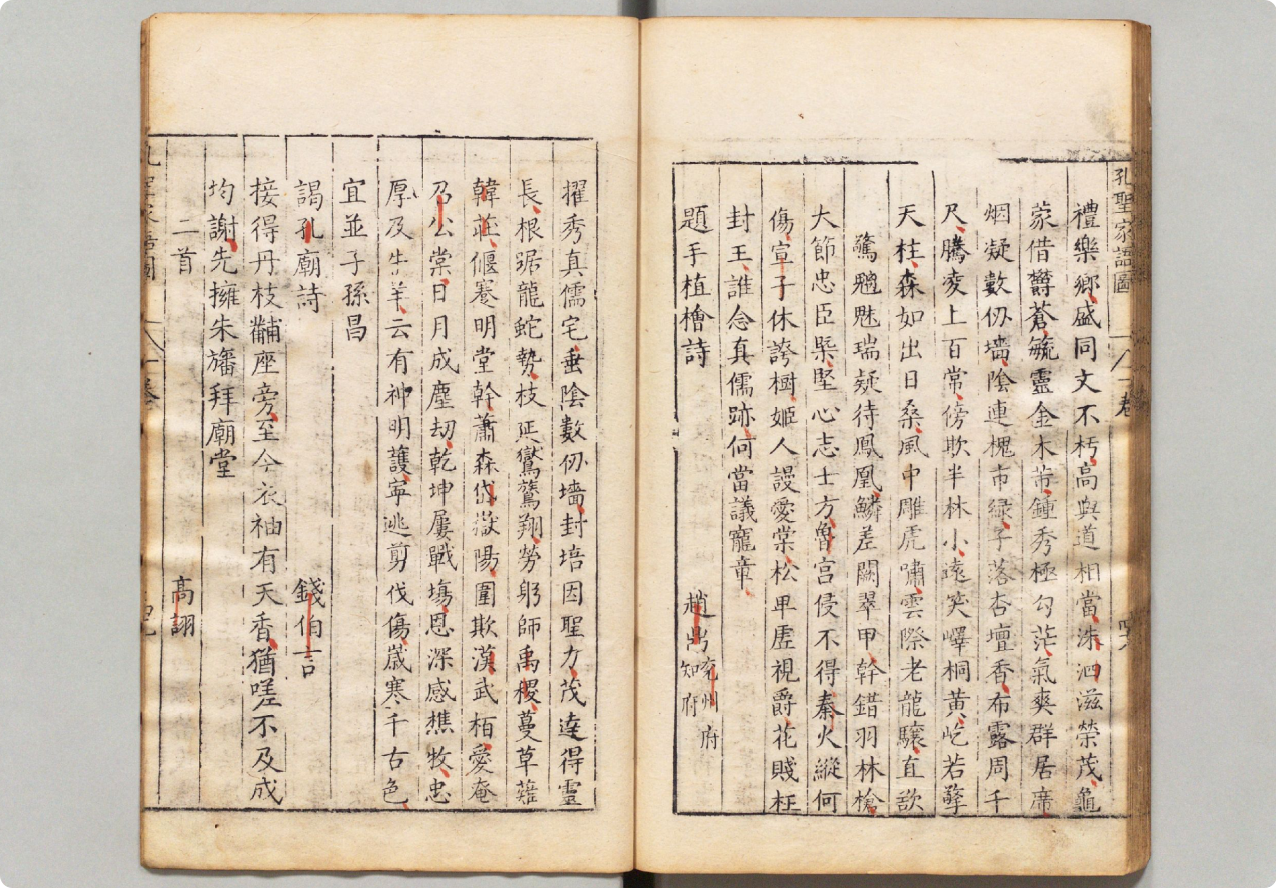 孔聖家語圖
十一卷
四六
禮樂鄉盛同文不朽高與道相當洙泗滋榮茂龜
蒙借欝蒼毓靈金木芾鍾秀極勾茫氣爽群居席
烟凝數仞墻陰連槐市綠子落杏壇香布露周千
尺騰凌上百常傍欺半林小遠笑嶧桐黃屹若擎
天柱森如出日桑風中雕虎嘯雲際老龍驤直欲
驚魍魅瑞疑待鳳凰鱗差闕翠甲幹錯羽林槍
大節忠臣槩堅心志士方魯宮侵不得秦火縱何
傷宣子休誇樹姬人謾愛棠松卑虛視爵花賤枉
封王誰念真儒跡何當議寵章
題手植檜詩
趙出
兖州府
知府
擢秀真儒宅垂陰數仞墻封培因聖力茂達得靈
長根踞龍蛇勢枝延鸑鷟翔勞躬師禹稷蔓草薙
韓莊偃蹇明堂幹蕭森岱嶽陽圍欺漢武栢愛奄
召公棠日月成塵刧乾坤屢戰塲恩深感樵牧忠
厚及牛羊云有神明護寧逃剪伐傷嵗寒千古色
宜並子孫昌
謁孔廟詩
錢伯言
接得丹枝黼座旁至今衣袖有天香猶嗟不及成
均謝先擁朱旛拜廟堂
二首
高詡